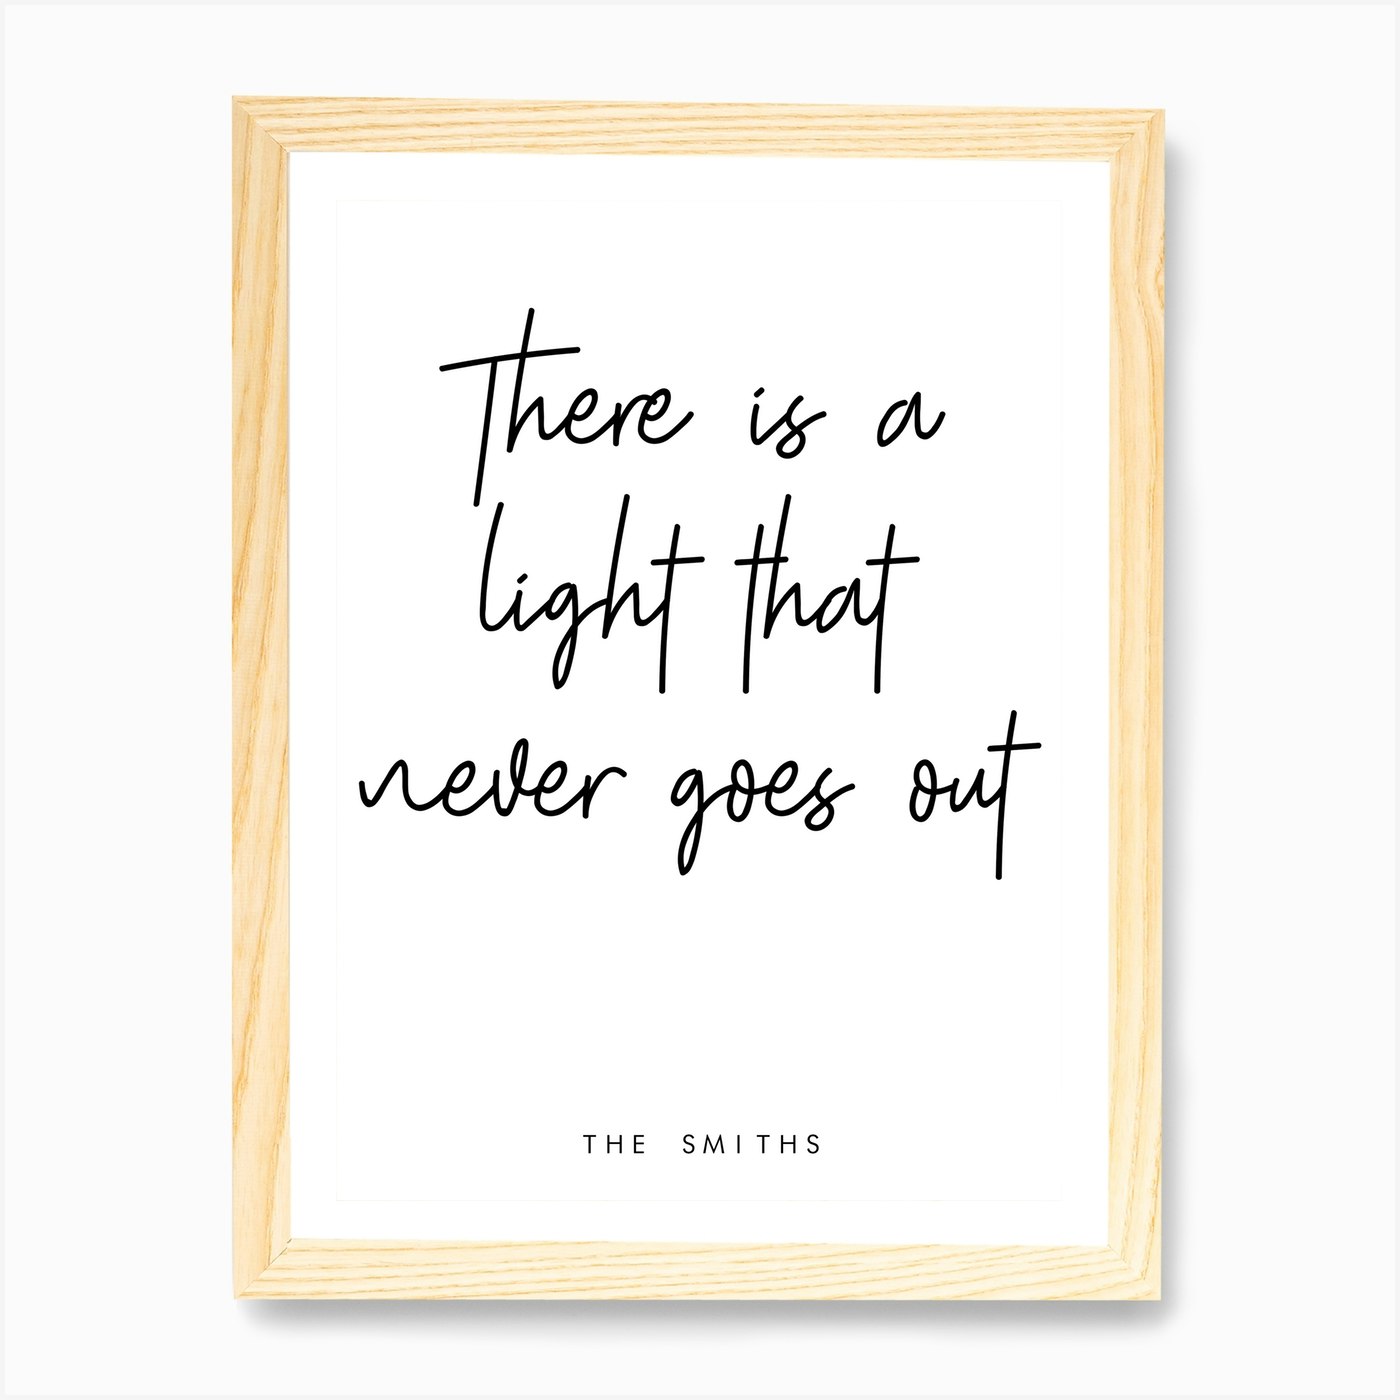 There is a
light that
never goes out
THE SMITHS